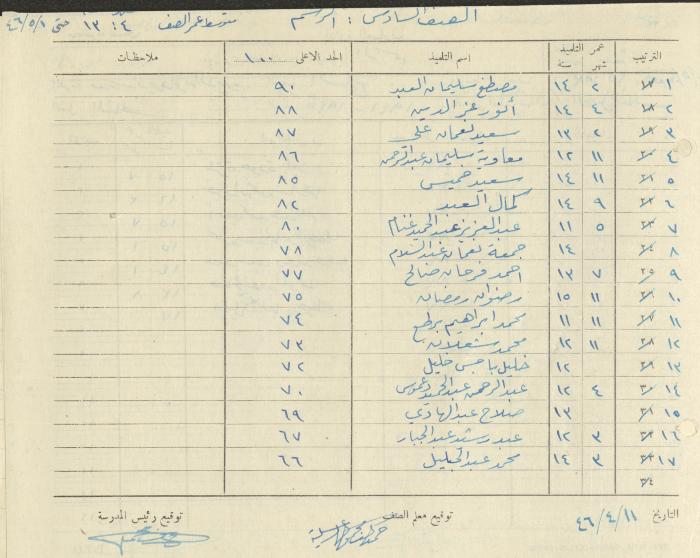 الصف السادس : الرسم متوسط عمر الصف ٤ : ١٣ حتى ٤٦/٥/١
الترتيب عمر التلميذ شهر سنة اسم التلميذ الحد الاعلى ١٠٠ ملاحظات
١ ٢ ١٤ مصطفى سليمان العبد ٩٠
٢ ٤ ١٤ أنور عز الدين ٨٨
٣ ٢ ١٣ سعيد نعمان علي ٨٧
٤ ١١ ١٢ معاوية سليمان عبد الرحمن ٨٦
٥ ١١ ١٤ سعيد خميس ٨٥
٦ ٩ ١٤ كمال العبد ٨٢
٧ ٥ ١١ عبد العزيز عبد الحميد غنام ٨٠
٨ ١٤ جمعة نعمان عبد السلام ٧٨
٩ ٧ ١٣ احمد فرحان صالح ٧٧
١٠ ١١ ١٥ رضوان رمضان ٧٥
١١ ١١ ١١ محمد ابراهيم ٧٤
١٢ ١١ ١٢ محمد شعلان ٧٣
١٣ ١٢ خليل خليل ٧٢
١٤ ٤ ١٢ عبد الرحمن عبد الحميد ٧٠
١٥ ١٣ صلاح عبد الهادي ٦٩
١٦ ٣ ١٢ عبد رشيد عبد الجبار ٦٧
١٧ ٣ ١٤ محمد عبد الجليل ٦٦
٣٤
التاريخ ٤٦/٤/١١ توقيع معلم الصف توقيع رئيس المدرسة